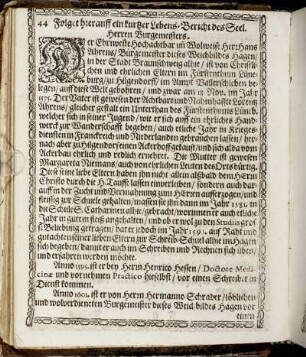 44 Folget hierauff ein kurtzer Lebens-Bericht des Seel.
Herren Burgemeisters.
Er Ehrnveste, Hochachtbar un Wolweise Herr Hans
Ahrens, Bürgemeister dieses Weichbildes Hagen,
in der Stadt Braunschweig alhie, ist von Christli-
chen und ehrlichen Eltern im Fürstenthum Lüne-
burg, zu Hilgendorff im Ampt Vallersleben be-
legen, auff diese Welt gebohren, und zwar am 13 Nov. im Jahr
1575. Der Vater ist gewesen der Achtbare und Nahmhaffte Lorentz
Ahrens, gleicher gestalt ein Unterthan des Fürstenthums Lüneb.
welcher sich in seiner Jugend, wie er sich auff ein ehrliches Hand-
werck zur Wanderschafft begeben, auch etliche Jahr in Kriegs-
diensten in Franckreich und Niederlanden gebrauchen lassen, her-
nach aber zu Hilgendorff einen Ackerhoff gekaufft, und sich alda vom
Ackerbau ehrlich und redlich ernehret. Die Mutter ist gewesen
Margareta Niemans, auch von ehrlichen Leuten des Orts bürtig.
Diese seine liebe Eltern haben ihn nicht allein alßbald dem Herren
Christo durch die H. Tauffe lassen einverleiben, sondern auch dar-
auff in der Zucht und Vermahnung zum HErren aufferzogen, und
fleissig zur Schuele gehalten, massen sie ihn dann im Jahr 1581. in
die Schule S. Catharinen alhie gebracht, worinnen er auch etliche
Jahr in gutem fleiß angehalten, und ob er wol zu den Studiis gros-
se Beliebung getragen, hat er jedoch im Jahr 1591. auf Raht und
gutachten seiner lieben Eltern zur Schreib-Schuel alhie im Hagen
sich begeben, damit er auch im Schreiben und Rechnen sich üben,
und erfahren werden möchte.
Anno 1595. ist er bey Herrn Henrico Hessen, Doctore Medi-
cinæ und vornehmen Practico hieselbst, vor einen Schreiber in
Dienst kommen.
Anno 1602. ist er von Herrn Hermanno Schrader, löblichen
und wolverdieneten Burgemeister dieses Weichbildes Hagen vor
einen